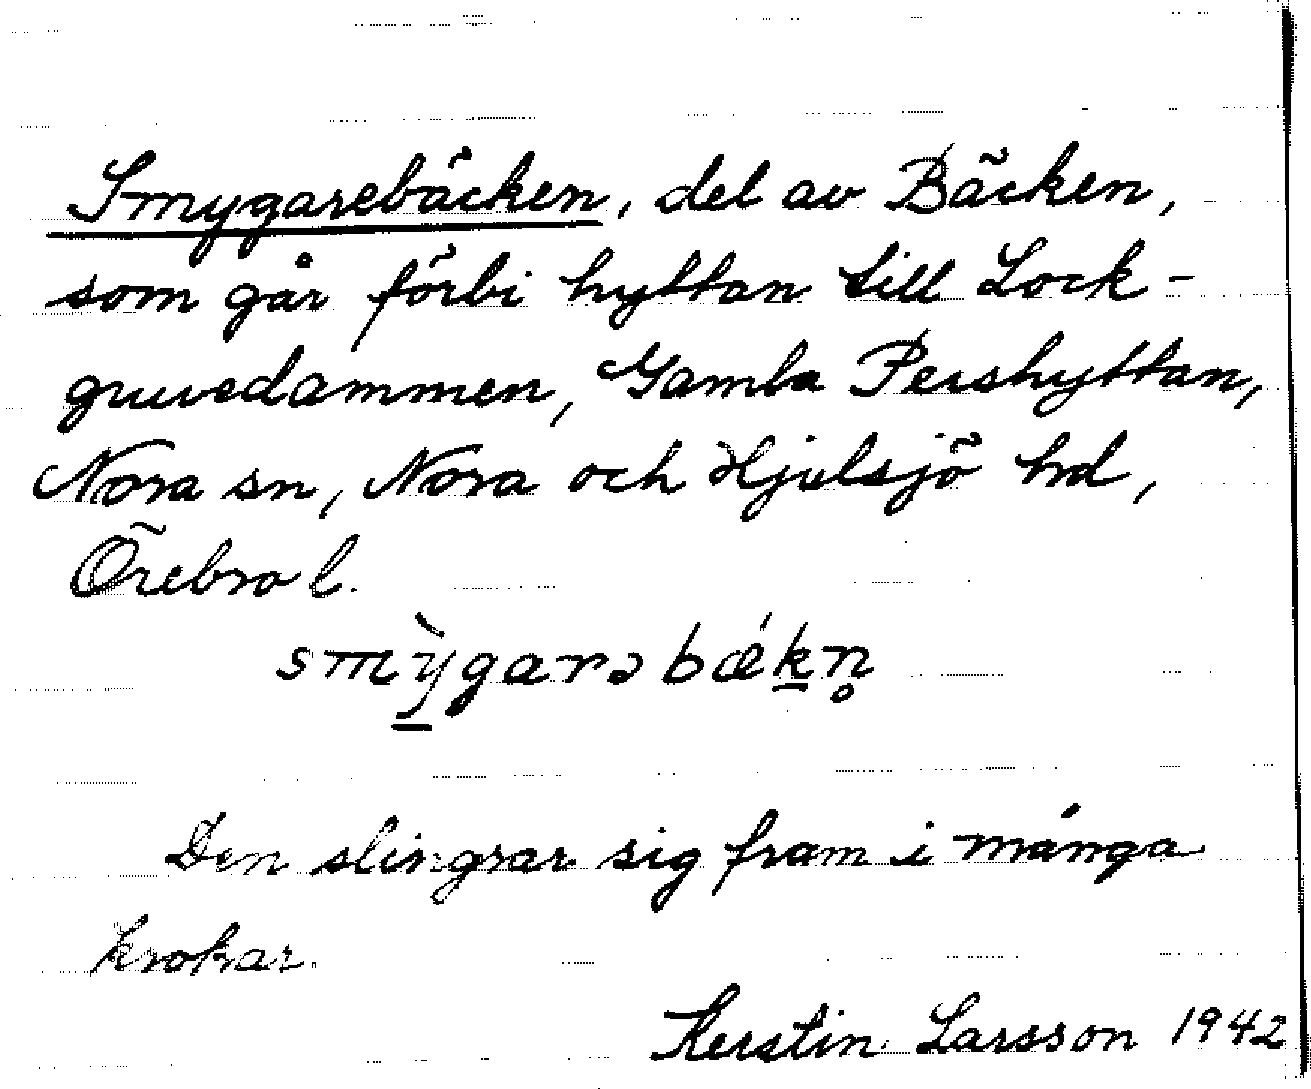 Smygarebäcken, del av Bäcken,
som går förbi hyttan till Lock-
gruvedammen, Gamla Pershyttan,
Nora sn, Nora och Hjulsjö hd,
Örebro l.
smỳ̲garəbǽk̲n̥
Den slingrar sig fram i många
krokar.
Kerstin Larsson 1942